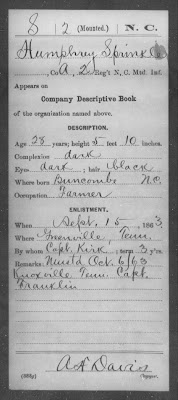 S 2 (Mounted.) N. C.
Humphrey Sprinkle
Co. A, 2 Reg't N. C. Mtd. Inf.
Appears on
Company Descriptive Book
of the organization named above.
DESCRIPTION.
Age 28 years; height 5 feet 10 inches.
Complexion dark
Eyes dark; hair black
Where born Buncombe N.C.
Occupation Farmer
ENLISTMENT.
When Sept. 15, 1863.
Where Greenville, Tenn.
By whom Capt. Kirk; term 3 y'rs.
Remarks: Must'd Oct. 6/63
Knoxville Tenn Capt.
Franklin
A H Davis
(383g) Copyist.